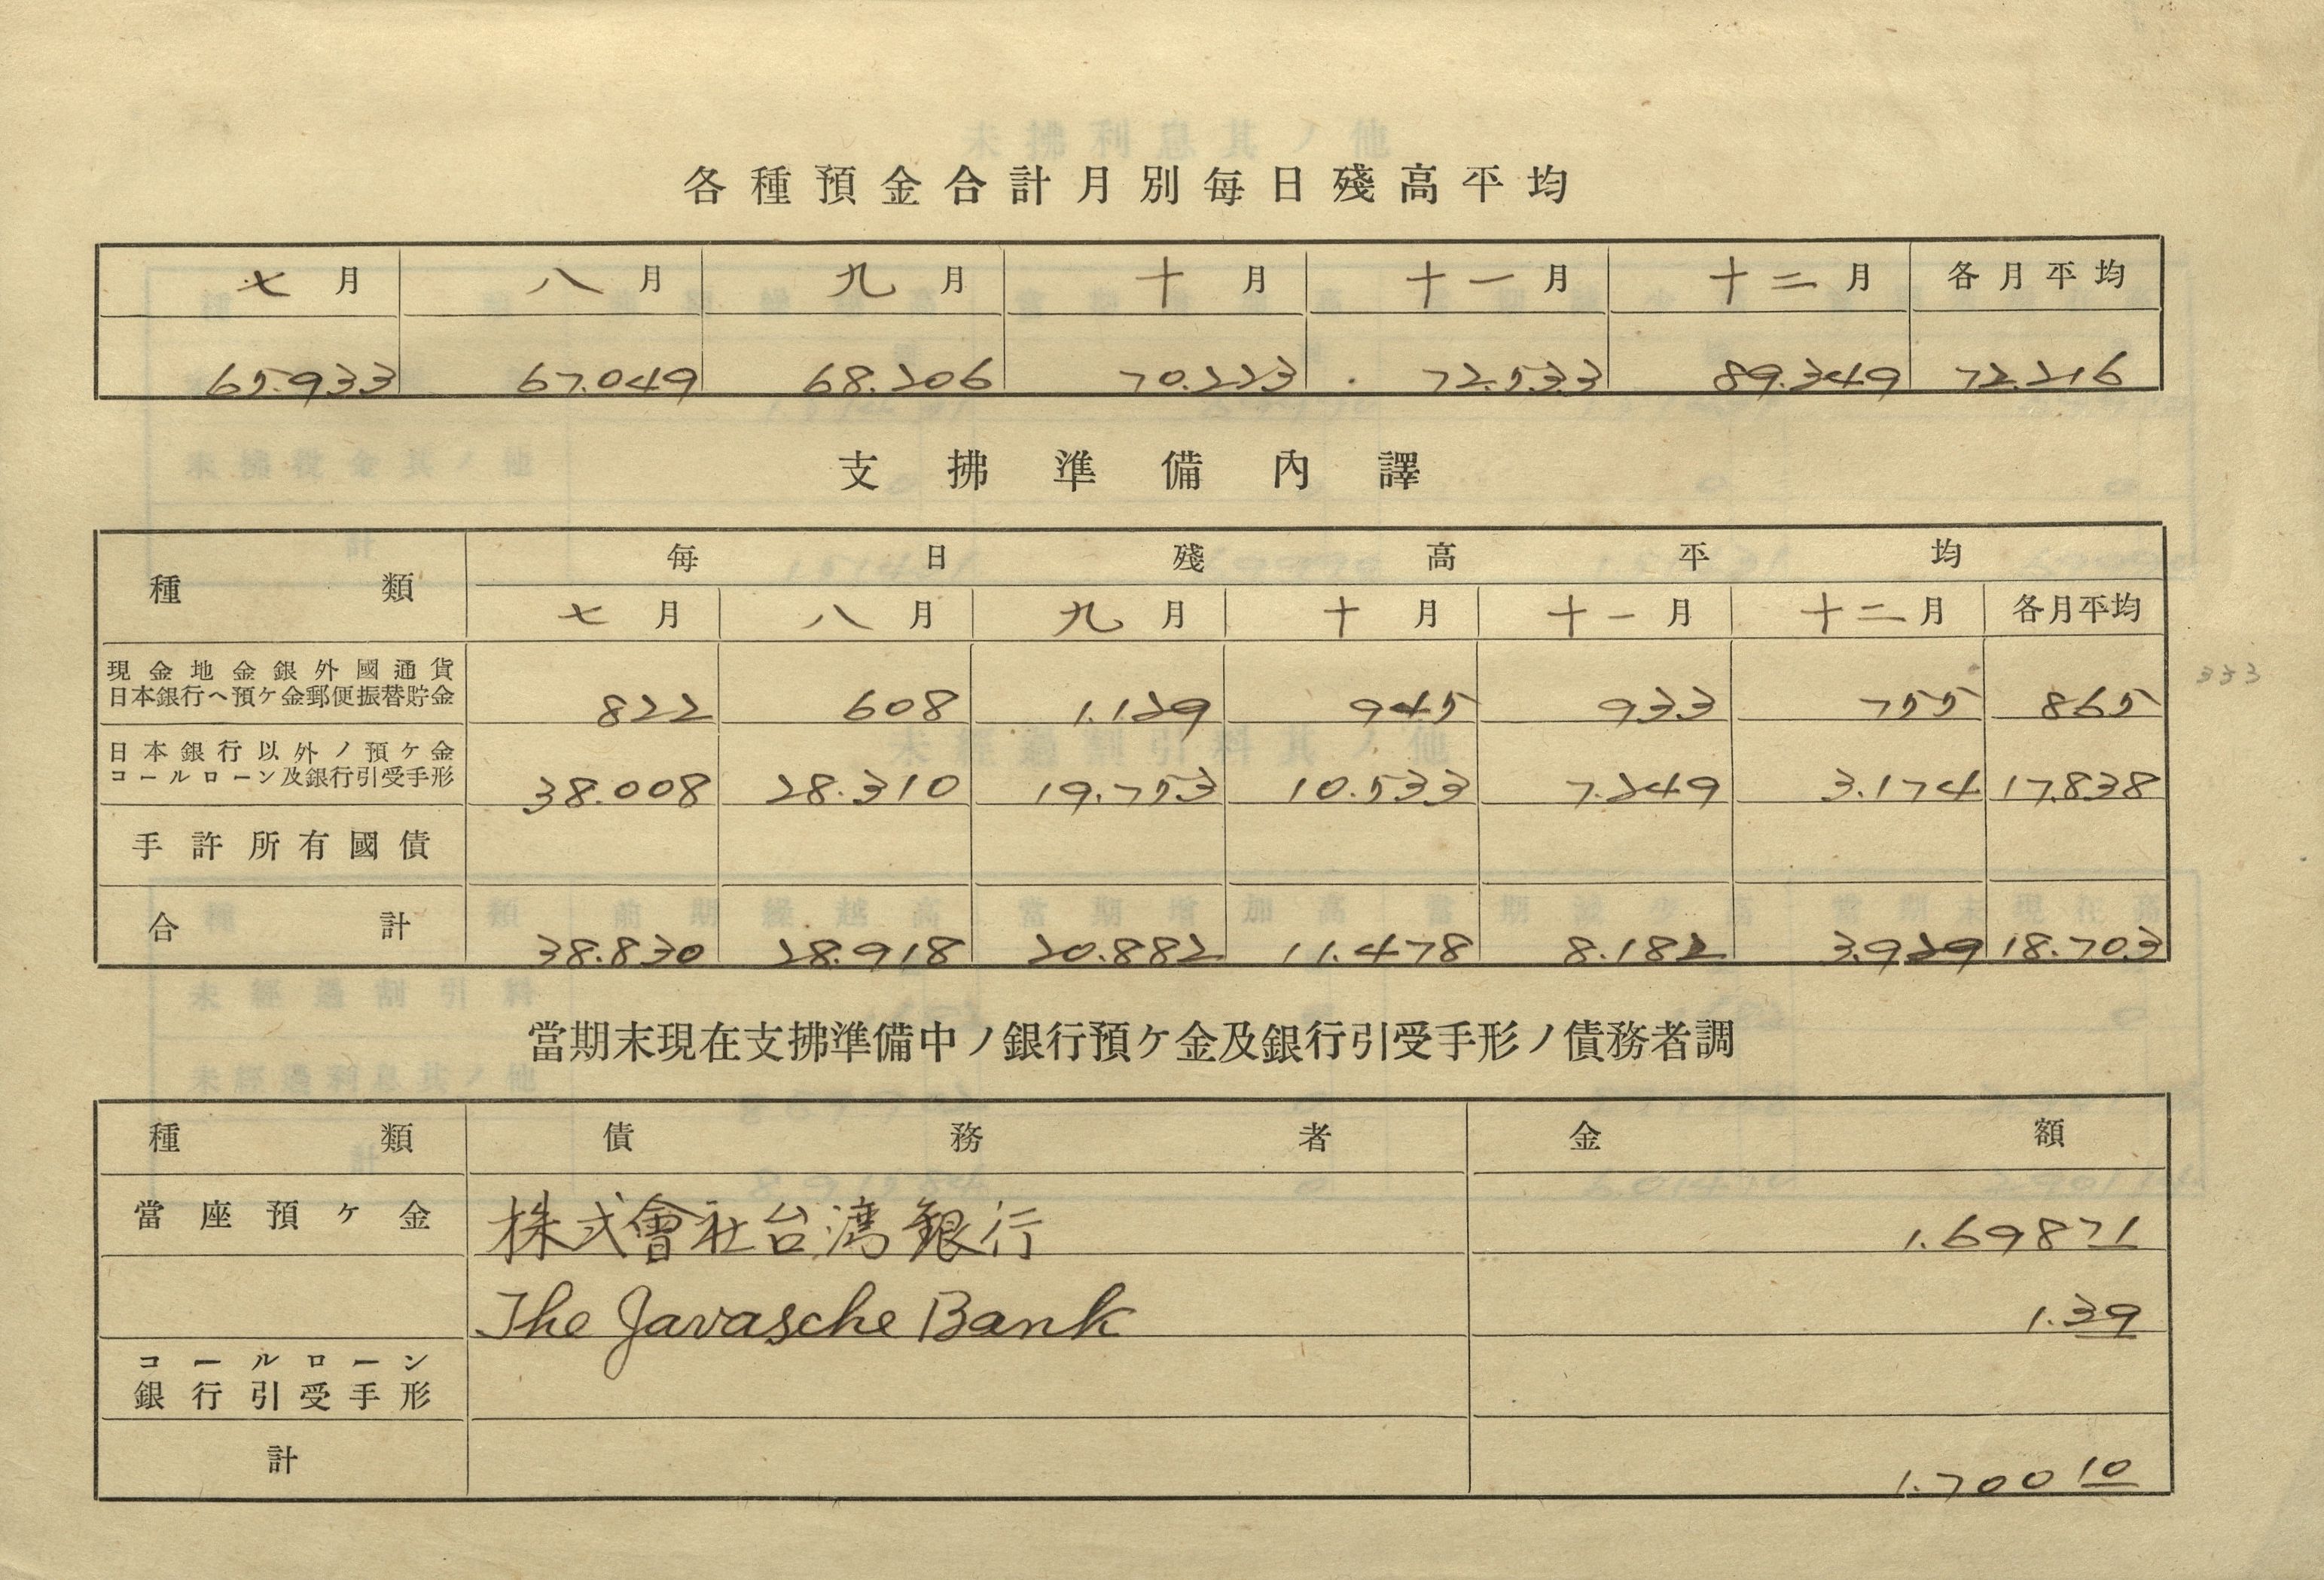 各種預金合計月別每日殘高平均
七月 八月 九月 十月 十一月 十二月 各月平均
65.933 67.049 68.206 70.223 72.533 89.349 72.216
支拂準備內譯
種類 每日殘高平均
七月 八月 九月 十月 十一月 十二月 各月平均
現金地金銀外國通貨
日本銀行ヘ預ケ金郵便振替貯金 822 608 1.129 945 933 755 865
333
日本銀行以外ノ預ケ金
コールローン及銀行引受手形 38.008 28.310 19.753 10.533 7.249 3.174 17.838
手許所有國債
合計 38.830 28.918 20.882 11.478 8.182 3.929 18.703
當期末現在支拂準備中ノ銀行預ケ金及銀行引受手形ノ債務者調
種類 債務者 金額
當座預ケ金 株式會社台湾銀行 1.69871
The Javasche Bank 1.39
コールローン
銀行引受手形
計 1.70010